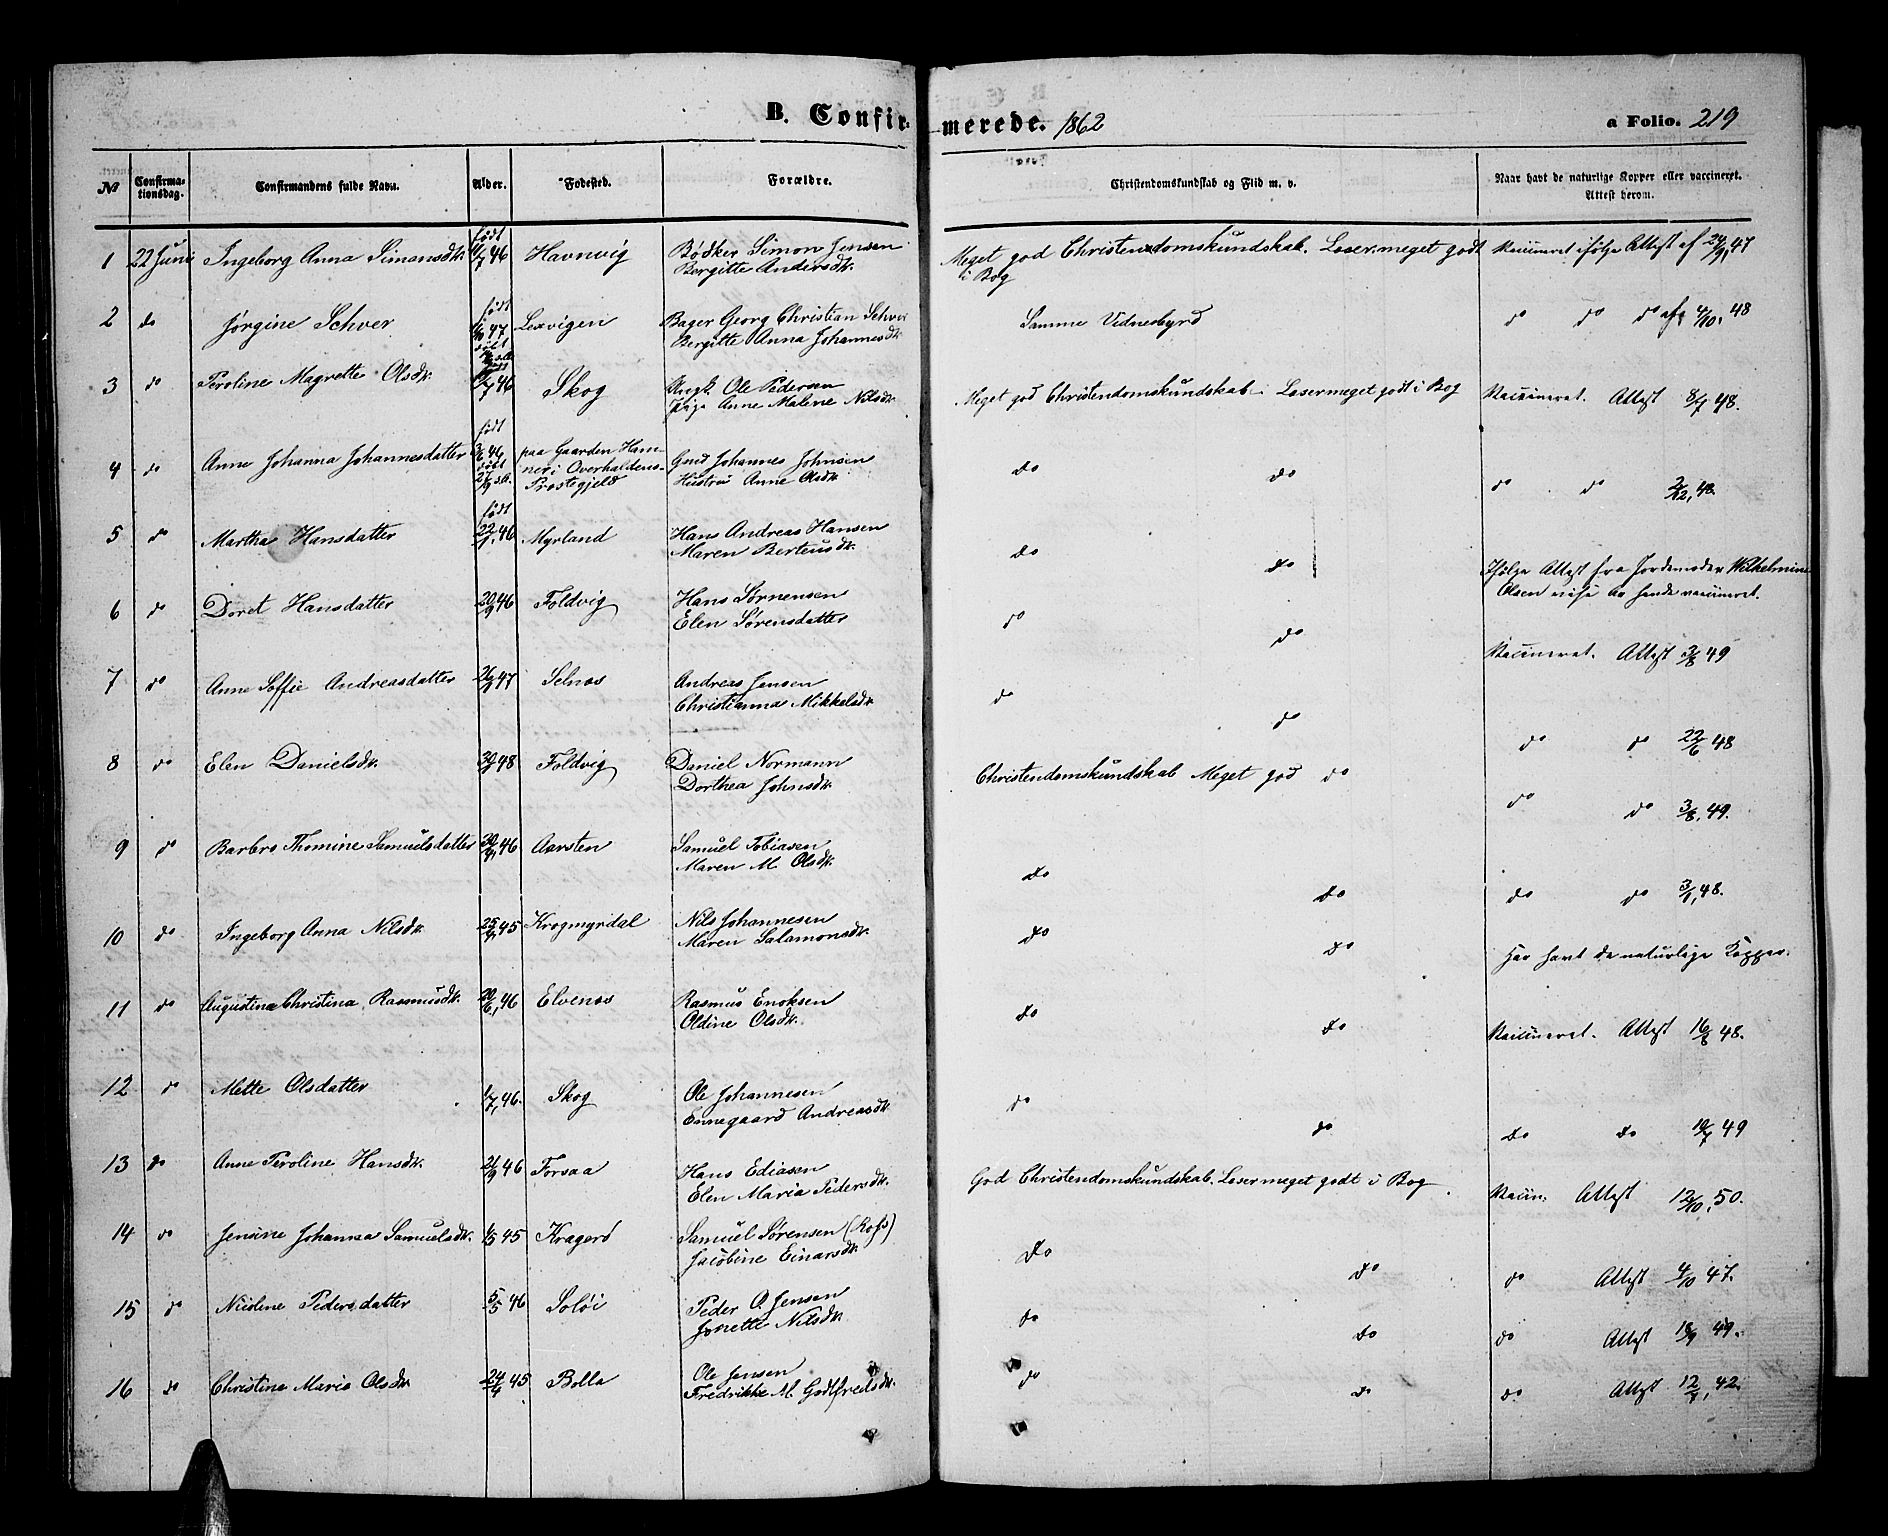 B. Confir-merede. 1862
a Folio. 219
No
Confirma-tionsdag.
Confirmandens fulde Navn.
Alder.
Fødested.
Forældre.
Christendomskundskab og Flid m. v.
Naar havt de naturlige Kopper eller vaccineret. Attest herom.
1 22 Juni Ingeborg Anna Simonsdtr. født 46 Havnvig Bødker Simon Jensen Meget god Christendomskundskab. Læser meget godt Vaccineret ifølge Attest af 24/9, 47
Bergitte Andersdtr. i Bog
2 do Jørgine Schver født 47 Lexvigen Bager Georg Christian Schver Samme Vidnesbyrd do do do af 4/10, 48
Bergitte Anna Johannesdtr.
3 do Peroline Magrette Olsdtr. 46 Skog Ungk. Ole Pedersen Meget god Christendomskundskab. Læser meget godt i Bog Vaccineret. Attest 8/7 48.
Pige Anne Malene Nilsdtr.
4 do Anne Johanna Johannesdatter født 3/6 46 døbt 27/9 paa Gaarden Ham- Gmd Johannes Johnsen do do do do 2/12, 48.
ner i Overhaldens Hustru Anne Olsdtr.
Prestegjeld
5 do Martha Hansdatter født 22/1, 46 Myrland Hans Andreas Hansen do do Ifølge Attest fra Jordemoder Wilhelmine
Maren Berteusdtr. Olsen
6 do Doret Hansdatter 20/9 46 Foldvig Hans Sørnensen do do Vaccineret. Attest 3/8 49
Elen Sørensdatter
7 do Anne Soffie Andreasdatter 47 Selnæs Andreas Jensen do do do do 22/6 48
Christianna Mikkelsdtr.
8 do Elen Danielsdtr. 48 Foldvig Daniel Normann Christendomskundskab Meget god do do do 3/8, 49.
Dorthea Johnsdtr.
9 do Barbro Thomine Samuelsdatter 46 Aarsten Samuel Tobiasen do do do do 3/1, 48.
Maren M. Olsdtr.
10 do Ingeborg Anna Nilsdtr. 45 Krogmyrdal Nils Johannesen do do Har havt de naturlige Kopper.
Maren Salamonsdtr.
11 do Augustina Christina Rasmusdtr. 20/6, 46 Elvenæs Rasmus Enoksen do do Vaccineret. Attest 16/8 48.
Oldine Olsdtr.
12 do Mette Olsdatter 1/7, 46. Skog Ole Johannesen do do do do 19/7 49
Ennegaard Andreasdtr.
13 do Anne Peroline Hansdtr. 21/9 46 Forsaa Hans Ediasen God Christendomskundskab. Læser meget godt i Bog Vaccin. Attest 12/10, 50.
Elen Maria Pedersdtr.
14 do Jensine Johanna Samuelsdtr. 1/5 45 Kragerö Samuel Sørensen do do do Attest 4/10 47.
Jacobine Einarsdtr.
15 do Nicoline Pedersdatter 5/5 46 Soløi Peder O. Jensen do do do Attest 18/9 49.
Jonette Nilsdtr.
16 do Christine Marie Olsdtr. 24/4 45 Bolla Ole Jensen do do do Attest 12/7, 42.
Fredrikke M. Godtfredsdtr.